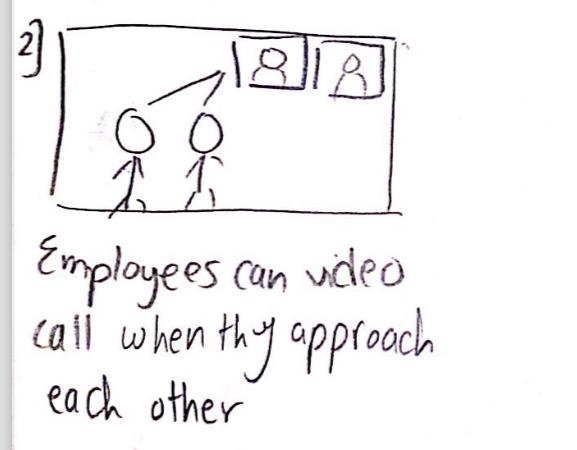 2]
Employees can video
call when thy approach
each other